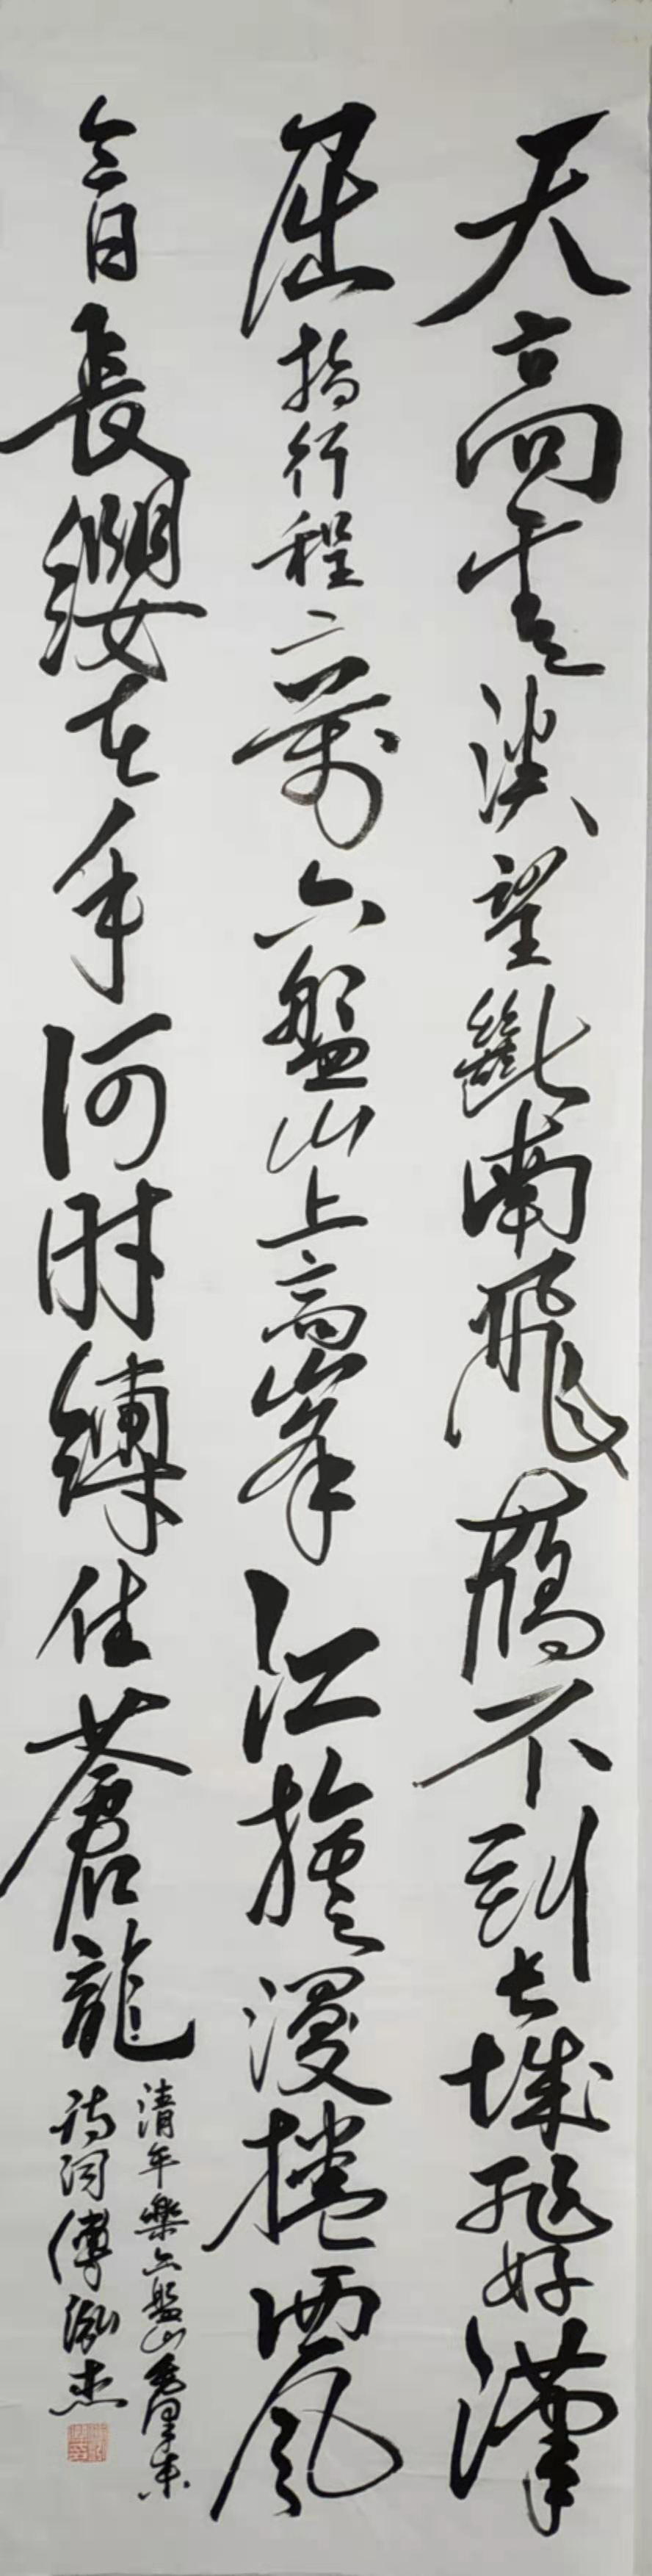 天高雲淡望斷南飛鴈不到長城非好漢
屈指行程二萬六盤山上高峯紅旗漫捲西風
今日長纓在手何時縛住蒼龍
清平樂六盤山毛澤東
詩詞傅泓杰